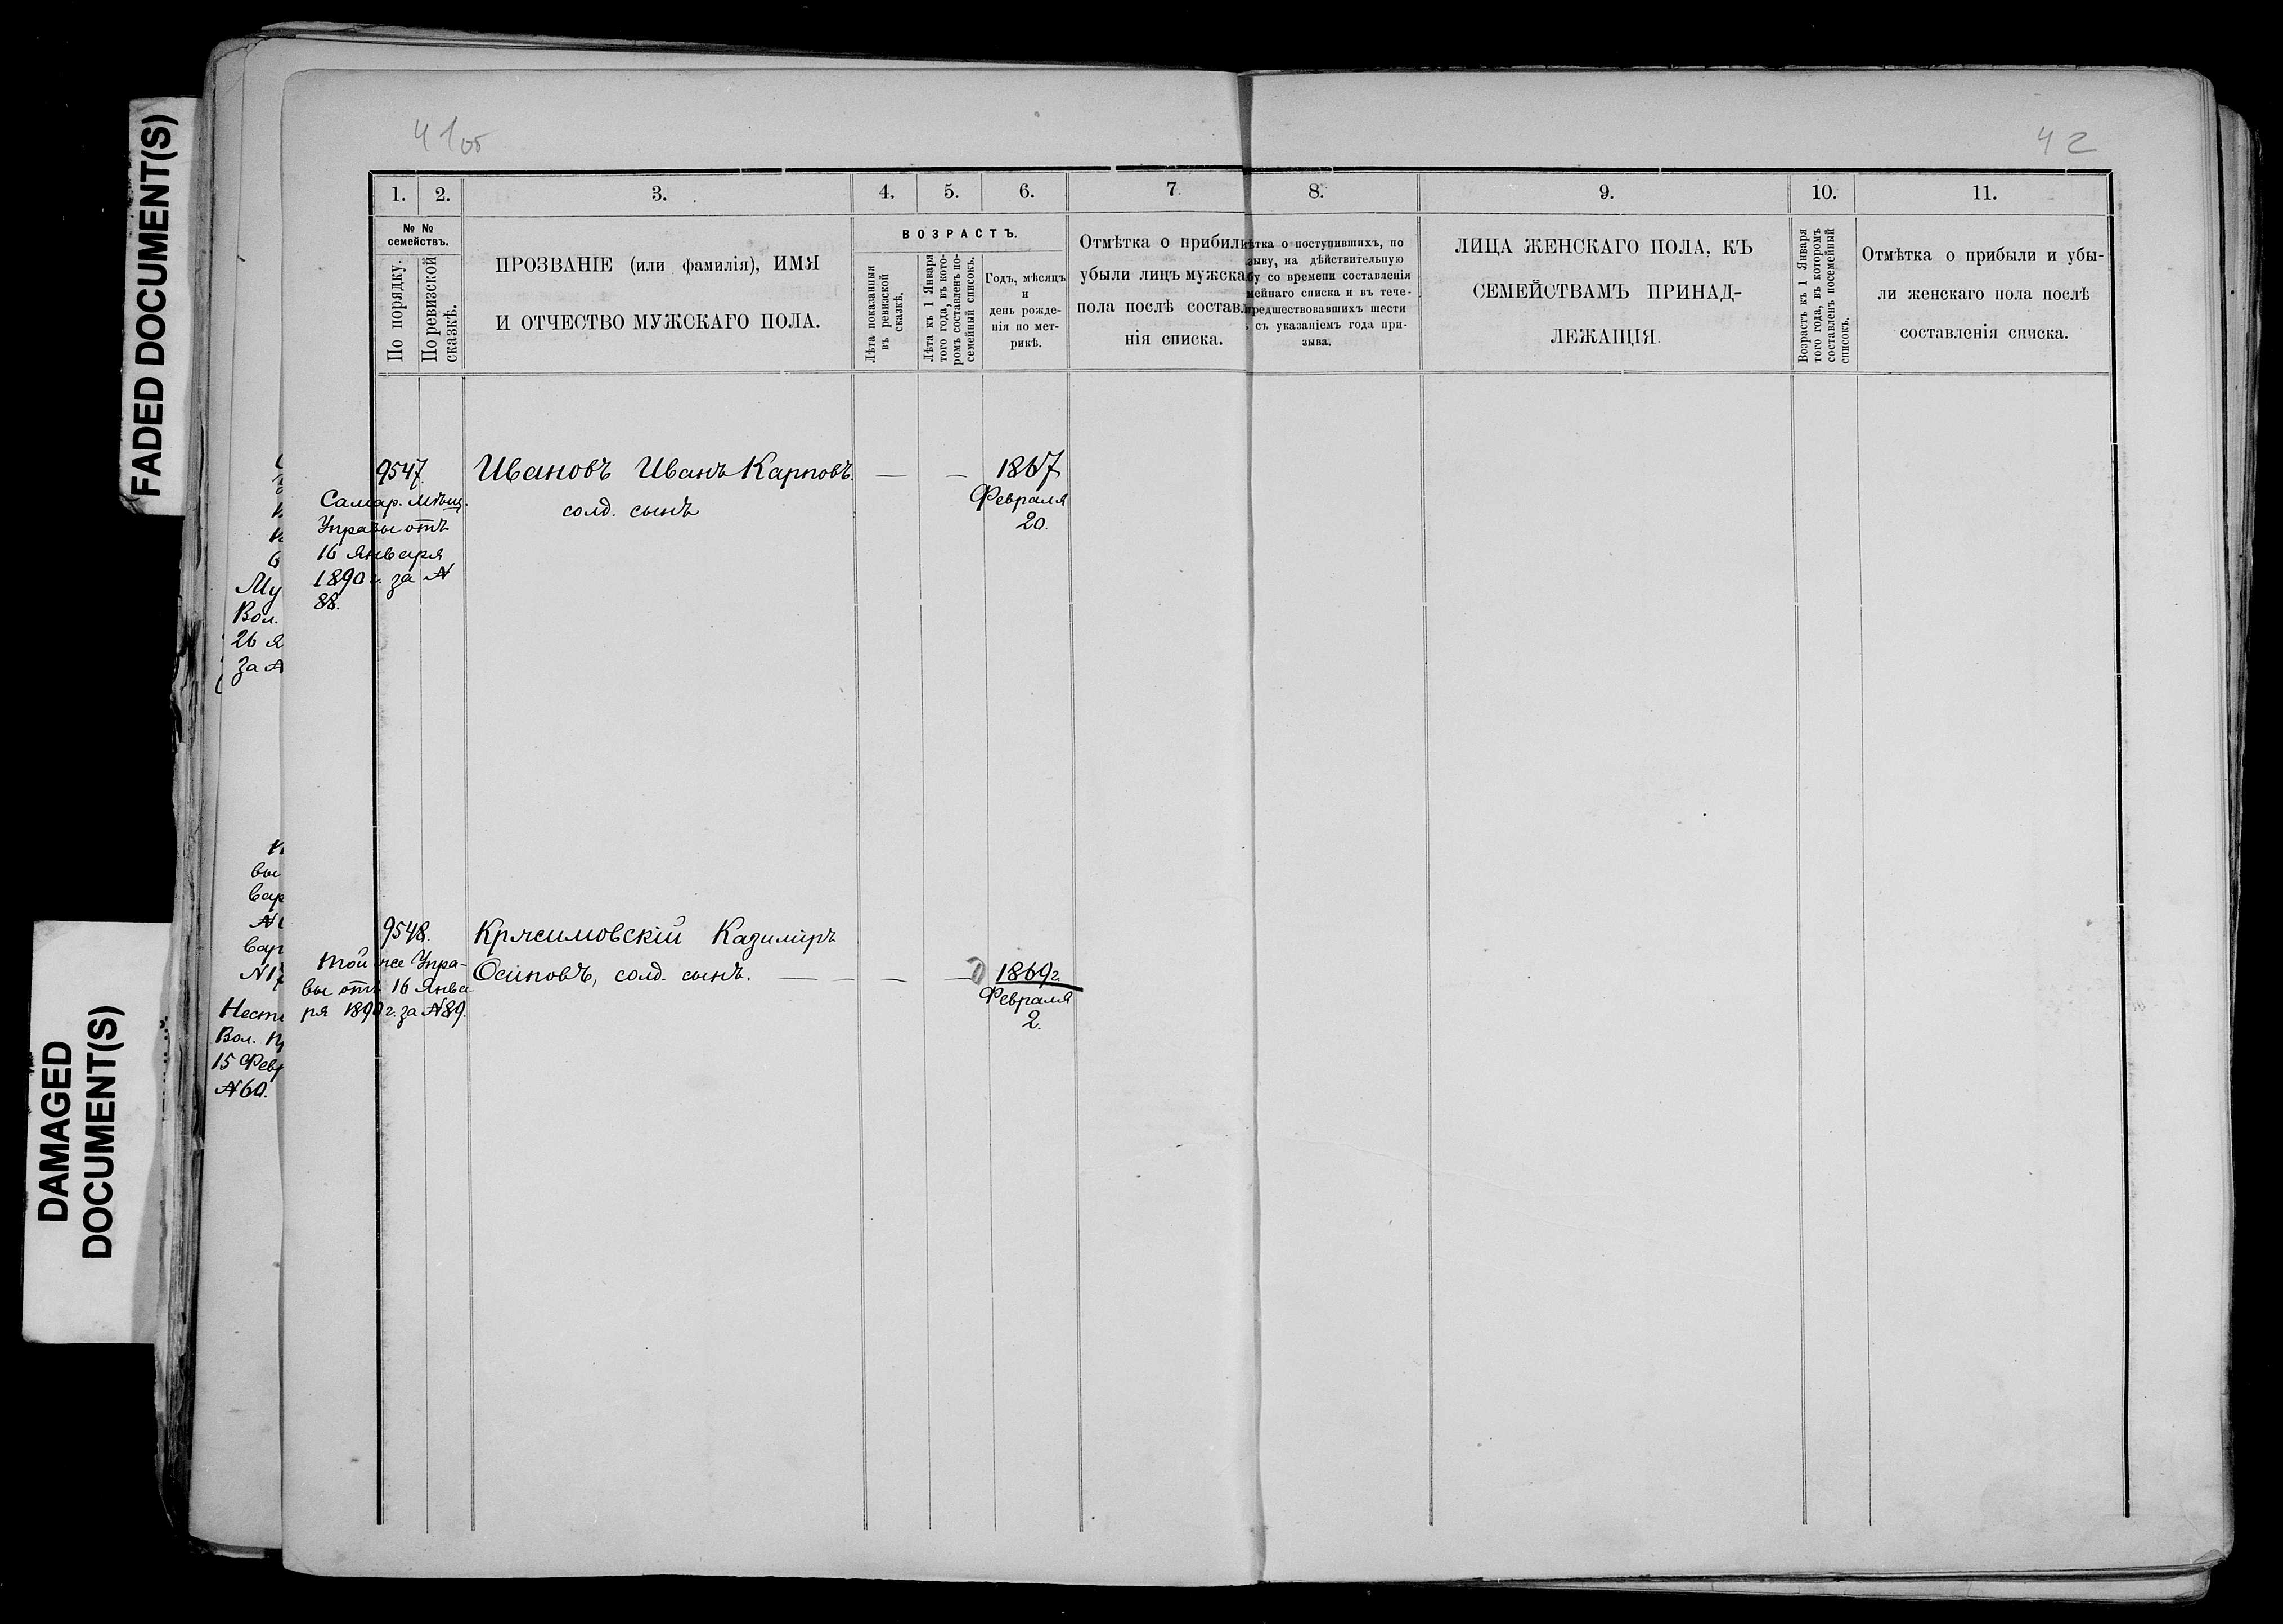 FADED DOCUMENT(S)
DAMAGED
DOCUMENT(S)
41об
42
1. 2. 3. 4. 5. 6. 7. 8. 9. 10. 11.
№ №
семействъ.
По порядку.
По ревизской
сказкѣ.
ПРОЗВАНІЕ (или фамилія), ИМЯ
И ОТЧЕСТВО МУЖСКАГО ПОЛА.
ВОЗРАСТЪ.
Лѣта показанныя
въ ревизской
сказкѣ.
Лѣта къ 1 Января
того года, въ кото-
ромъ составленъ по-
семейный списокъ.
Годъ, мѣсяцъ
и
день рожде-
нія по мет-
рикѣ.
Отмѣтка о прибыли
убыли лицъ мужска
пола послѣ состав.
нія списка.
ѣтка о поступившихъ, по
зыву, на дѣйствительную
бу со времени составленія
мейнаго списка и въ тече-
предшествовавшихъ шести
съ указаніемъ года при-
зыва.
ЛИЦА ЖЕНСКАГО ПОЛА, КЪ
СЕМЕЙСТВАМЪ ПРИНАД-
ЛЕЖАЩІЯ.
Возрастъ къ 1 Января
того года, въ которомъ
составленъ посемейный
списокъ.
Отмѣтка о прибыли и убы-
ли женскаго пола послѣ
составленія списка.
9547. Ивановъ Иванъ Карповъ. — — 1867
солд. сынъ
Февраля
20.
Самар. Мѣщ.
Управы отъ
16 Января
1890 г. за №
88.
Му
Вол.
26 Я
За №
9548. Крясимовскій Казимiръ
Осиповъ, солд. сынъ. — — — 1869г.
Февраля
2.
Той же Упра-
вы отъ 16 Янва
ря 1890 г. за №89.
вы
вар
вар
Нест
Вол.
15 Фев
№60.